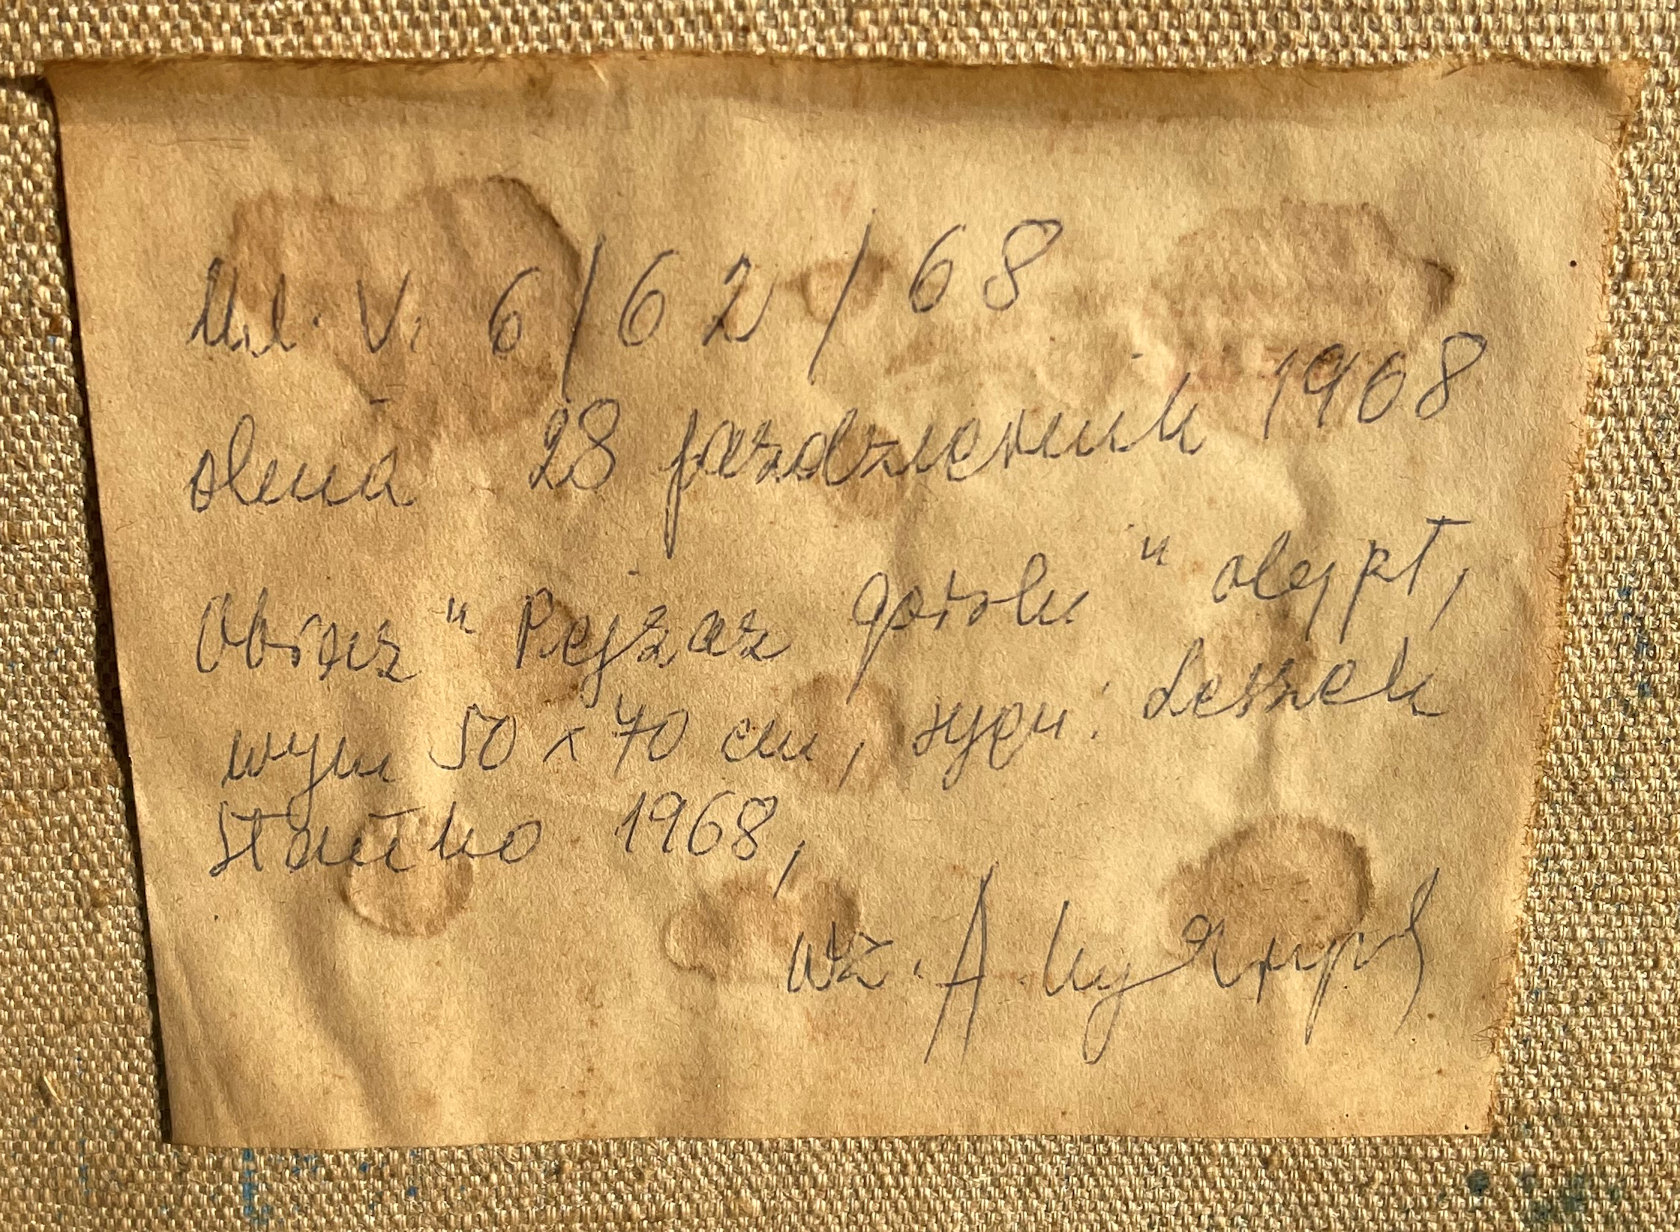 Ml. V. 6/62/68
dnia 28 październik 1968
Obraz " Pejzaz górski " olej pł,
wym 50 x 70 cm, sygn: Leszek
Stańko 1968,
wz. A.